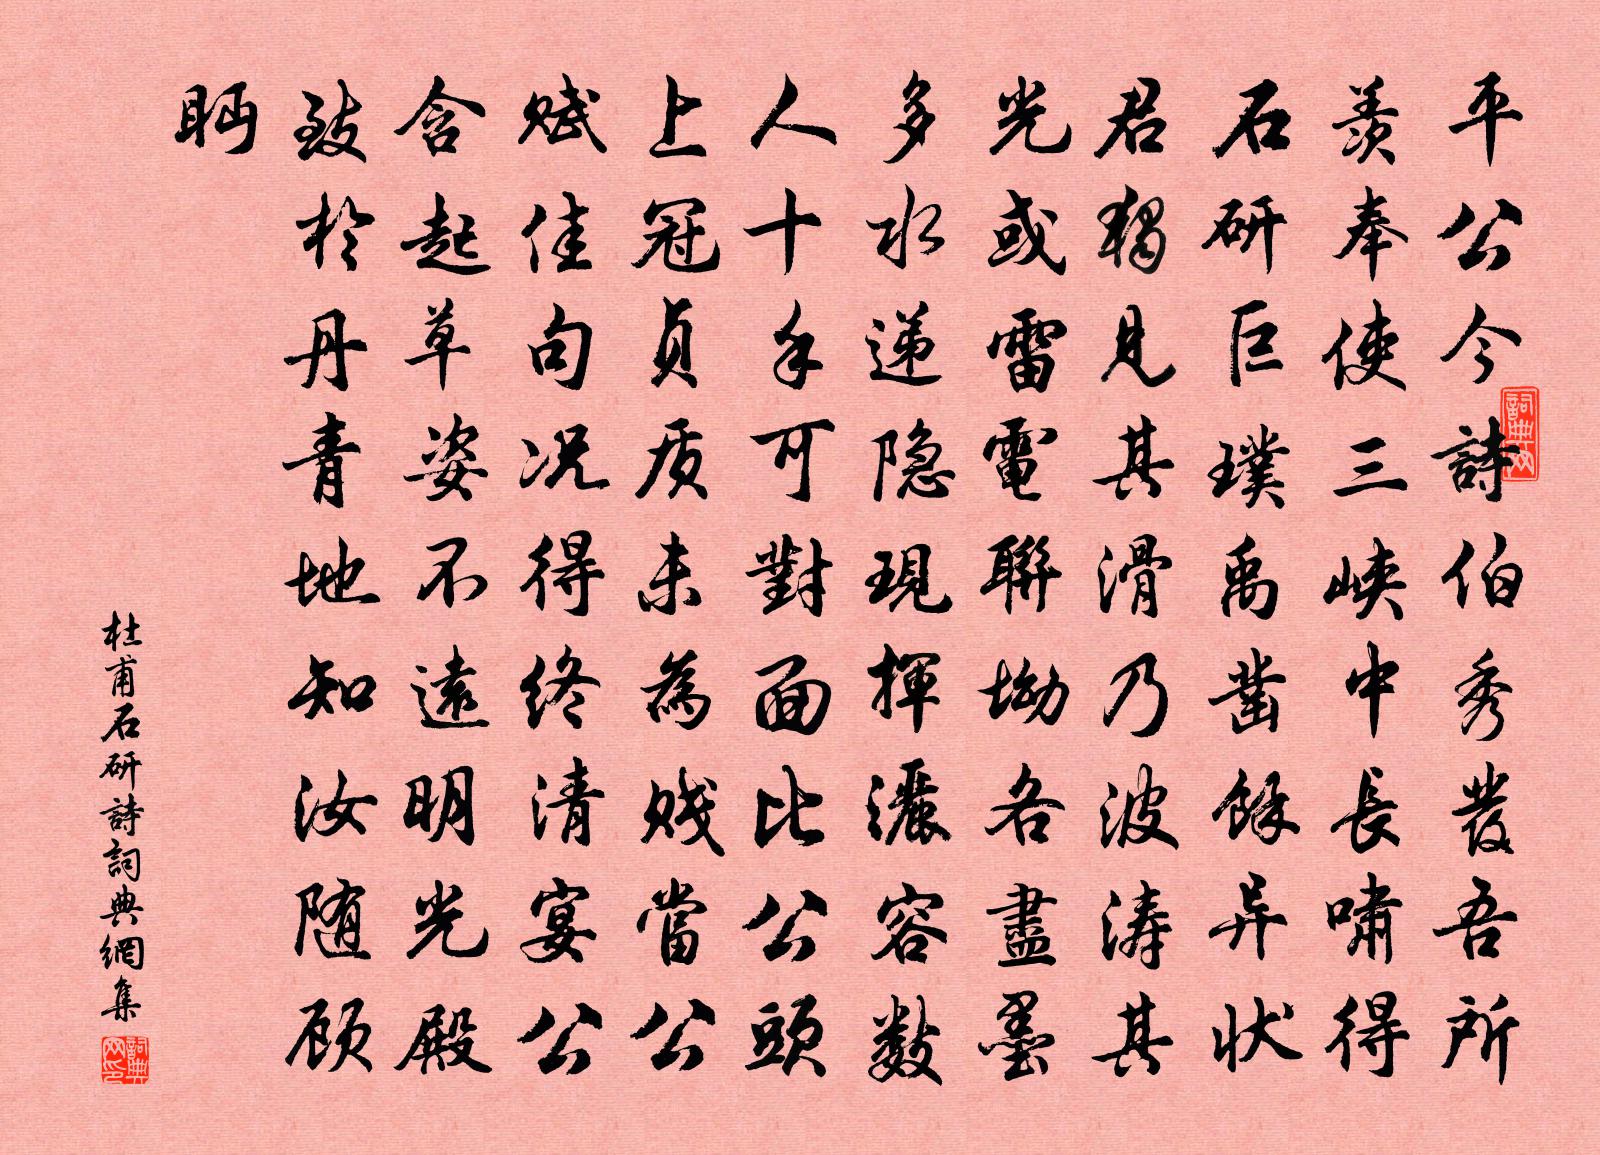 平公今詩伯秀發吾所
羨奉使三峽中長嘯得
石研巨璞禹凿餘异狀
君獨見其滑乃波涛其
光或雷電聯坳各盡墨
多水递隐現揮灑容數
人十手可對面比公頭
上冠貞质未為賤當公
賦佳句况得終清宴公
含起草姿不遠明光殿
致於丹青地知汝随顧
眄
杜甫石研詩詞典網集
詞典网
詞典网印